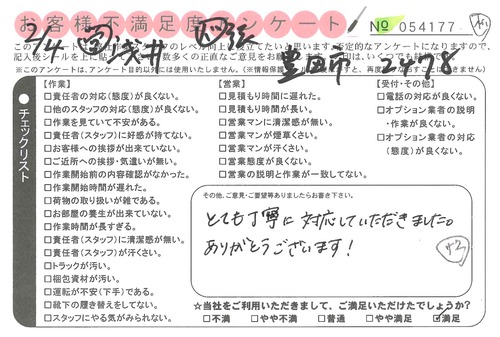 お客様不満足度アンケート
№ 054177
2/4
豊田市 2478
※このアンケートは、アンケート目的以外には使用いたしません。
チェックリスト
【作業】
□責任者の対応(態度)が良くない。
□他のスタッフの対応(態度)が良くない。
□作業を見ていて不安がある。
□責任者(スタッフ)に好感が持てない。
□お客様への挨拶が出来ていない。
□ご近所への挨拶・気遣いが無い。
□作業開始前の内容確認がなかった。
□作業開始時間が遅れた。
□荷物の取り扱いが雑である。
□お部屋の養生が出来ていない。
□作業時間が長すぎる。
□責任者(スタッフ)に清潔感が無い。
□責任者(スタッフ)が汗くさい。
□トラックが汚い。
□梱包資材が汚い。
□運転が不安(下手)である。
□靴下の履き替えをしてない。
□スタッフにやる気がみられない。
【営業】
□見積もり時間に遅れた。
□見積もり時間が長い。
□営業マンに清潔感が無い。
□営業マンが煙草くさい。
□営業マンが汗くさい。
□営業態度が良くない。
□営業の説明と作業が一致してない。
【受付・その他】
□電話の対応が良くない。
□オプション業者の説明
・作業が良くない。
□オプション業者の対応
(態度)が良くない。
その他、ご意見・ご要望等ありましたらお書き下さい。
とても丁寧に対応していただきました。
ありがとうございます!
☆当社をご利用いただきまして、ご満足いただけたでしょうか?
□不満 □やや不満 □普通 □やや満足 ☑満足